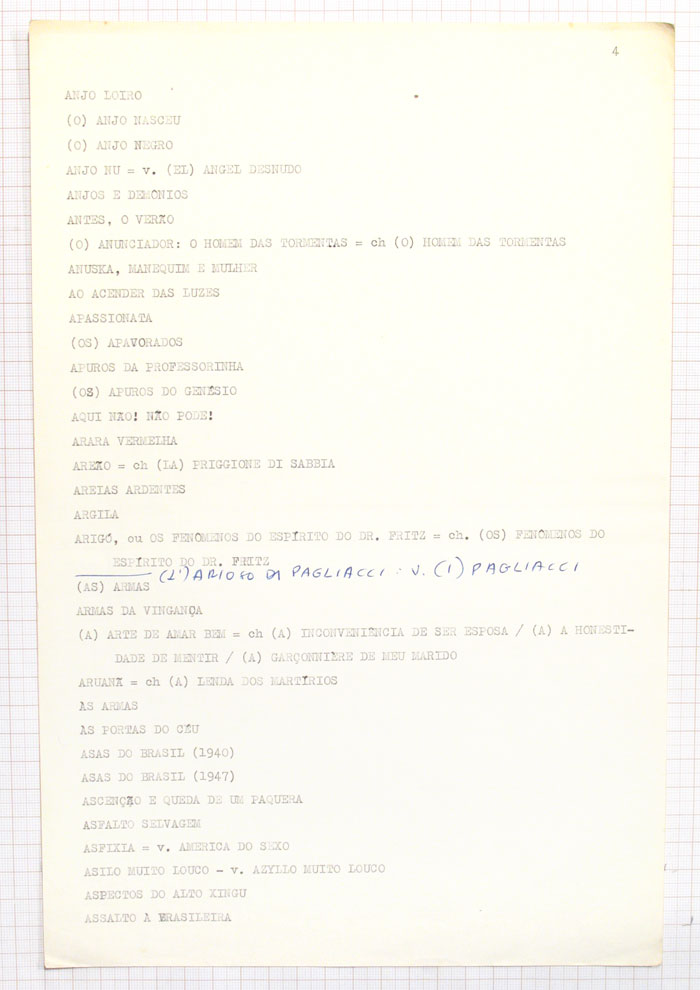 4
ANJO LOIRO
(O) ANJO NASCEU
(O) ANJO NEGRO
ANJO NU = v. (EL) ANGEL DESNUDO
ANJOS E DEMÔNIOS
ANTES, O VERÃO
(O) ANUNCIADOR: O HOMEM DAS TORMENTAS = ch (O) HOMEM DAS TORMENTAS
ANUSKA, MANEQUIM E MULHER
AO ACENDER DAS LUZES
APASSIONATA
(OS) APAVORADOS
APUROS DA PROFESSORINHA
(OS) APUROS DO GENÉSIO
AQUI NÃO! NÃO PODE!
ARARA VERMELHA
AREÃO = ch (LA) PRIGGIONE DI SABBIA
AREIAS ARDENTES
ARGILA
ARIGÓ, ou OS FENÔMENOS DO ESPÍRITO DO DR. FRITZ = ch. (OS) FENÔMENOS DO
ESPÍRITO DO DR. FRITZ
(L') ARIOSO DI PAGLIACCI : V. (I) PAGLIACCI
(AS) ARMAS
ARMAS DA VINGANÇA
(A) ARTE DE AMAR BEM = ch (A) INCONVENIÊNCIA DE SER ESPOSA / (A) A HONESTI-
DADE DE MENTIR / (A) GARÇONNIÈRE DE MEU MARIDO
ARUANÃ = ch (A) LENDA DOS MARTÍRIOS
ÀS ARMAS
ÀS PORTAS DO CÉU
ASAS DO BRASIL (1940)
ASAS DO BRASIL (1947)
ASCENÇÃO E QUEDA DE UM PAQUERA
ASFALTO SELVAGEM
ASFIXIA = v. AMERICA DO SEXO
ASILO MUITO LOUCO - v. AZYLLO MUITO LOUCO
ASPECTOS DO ALTO XINGU
ASSALTO À BRASILEIRA